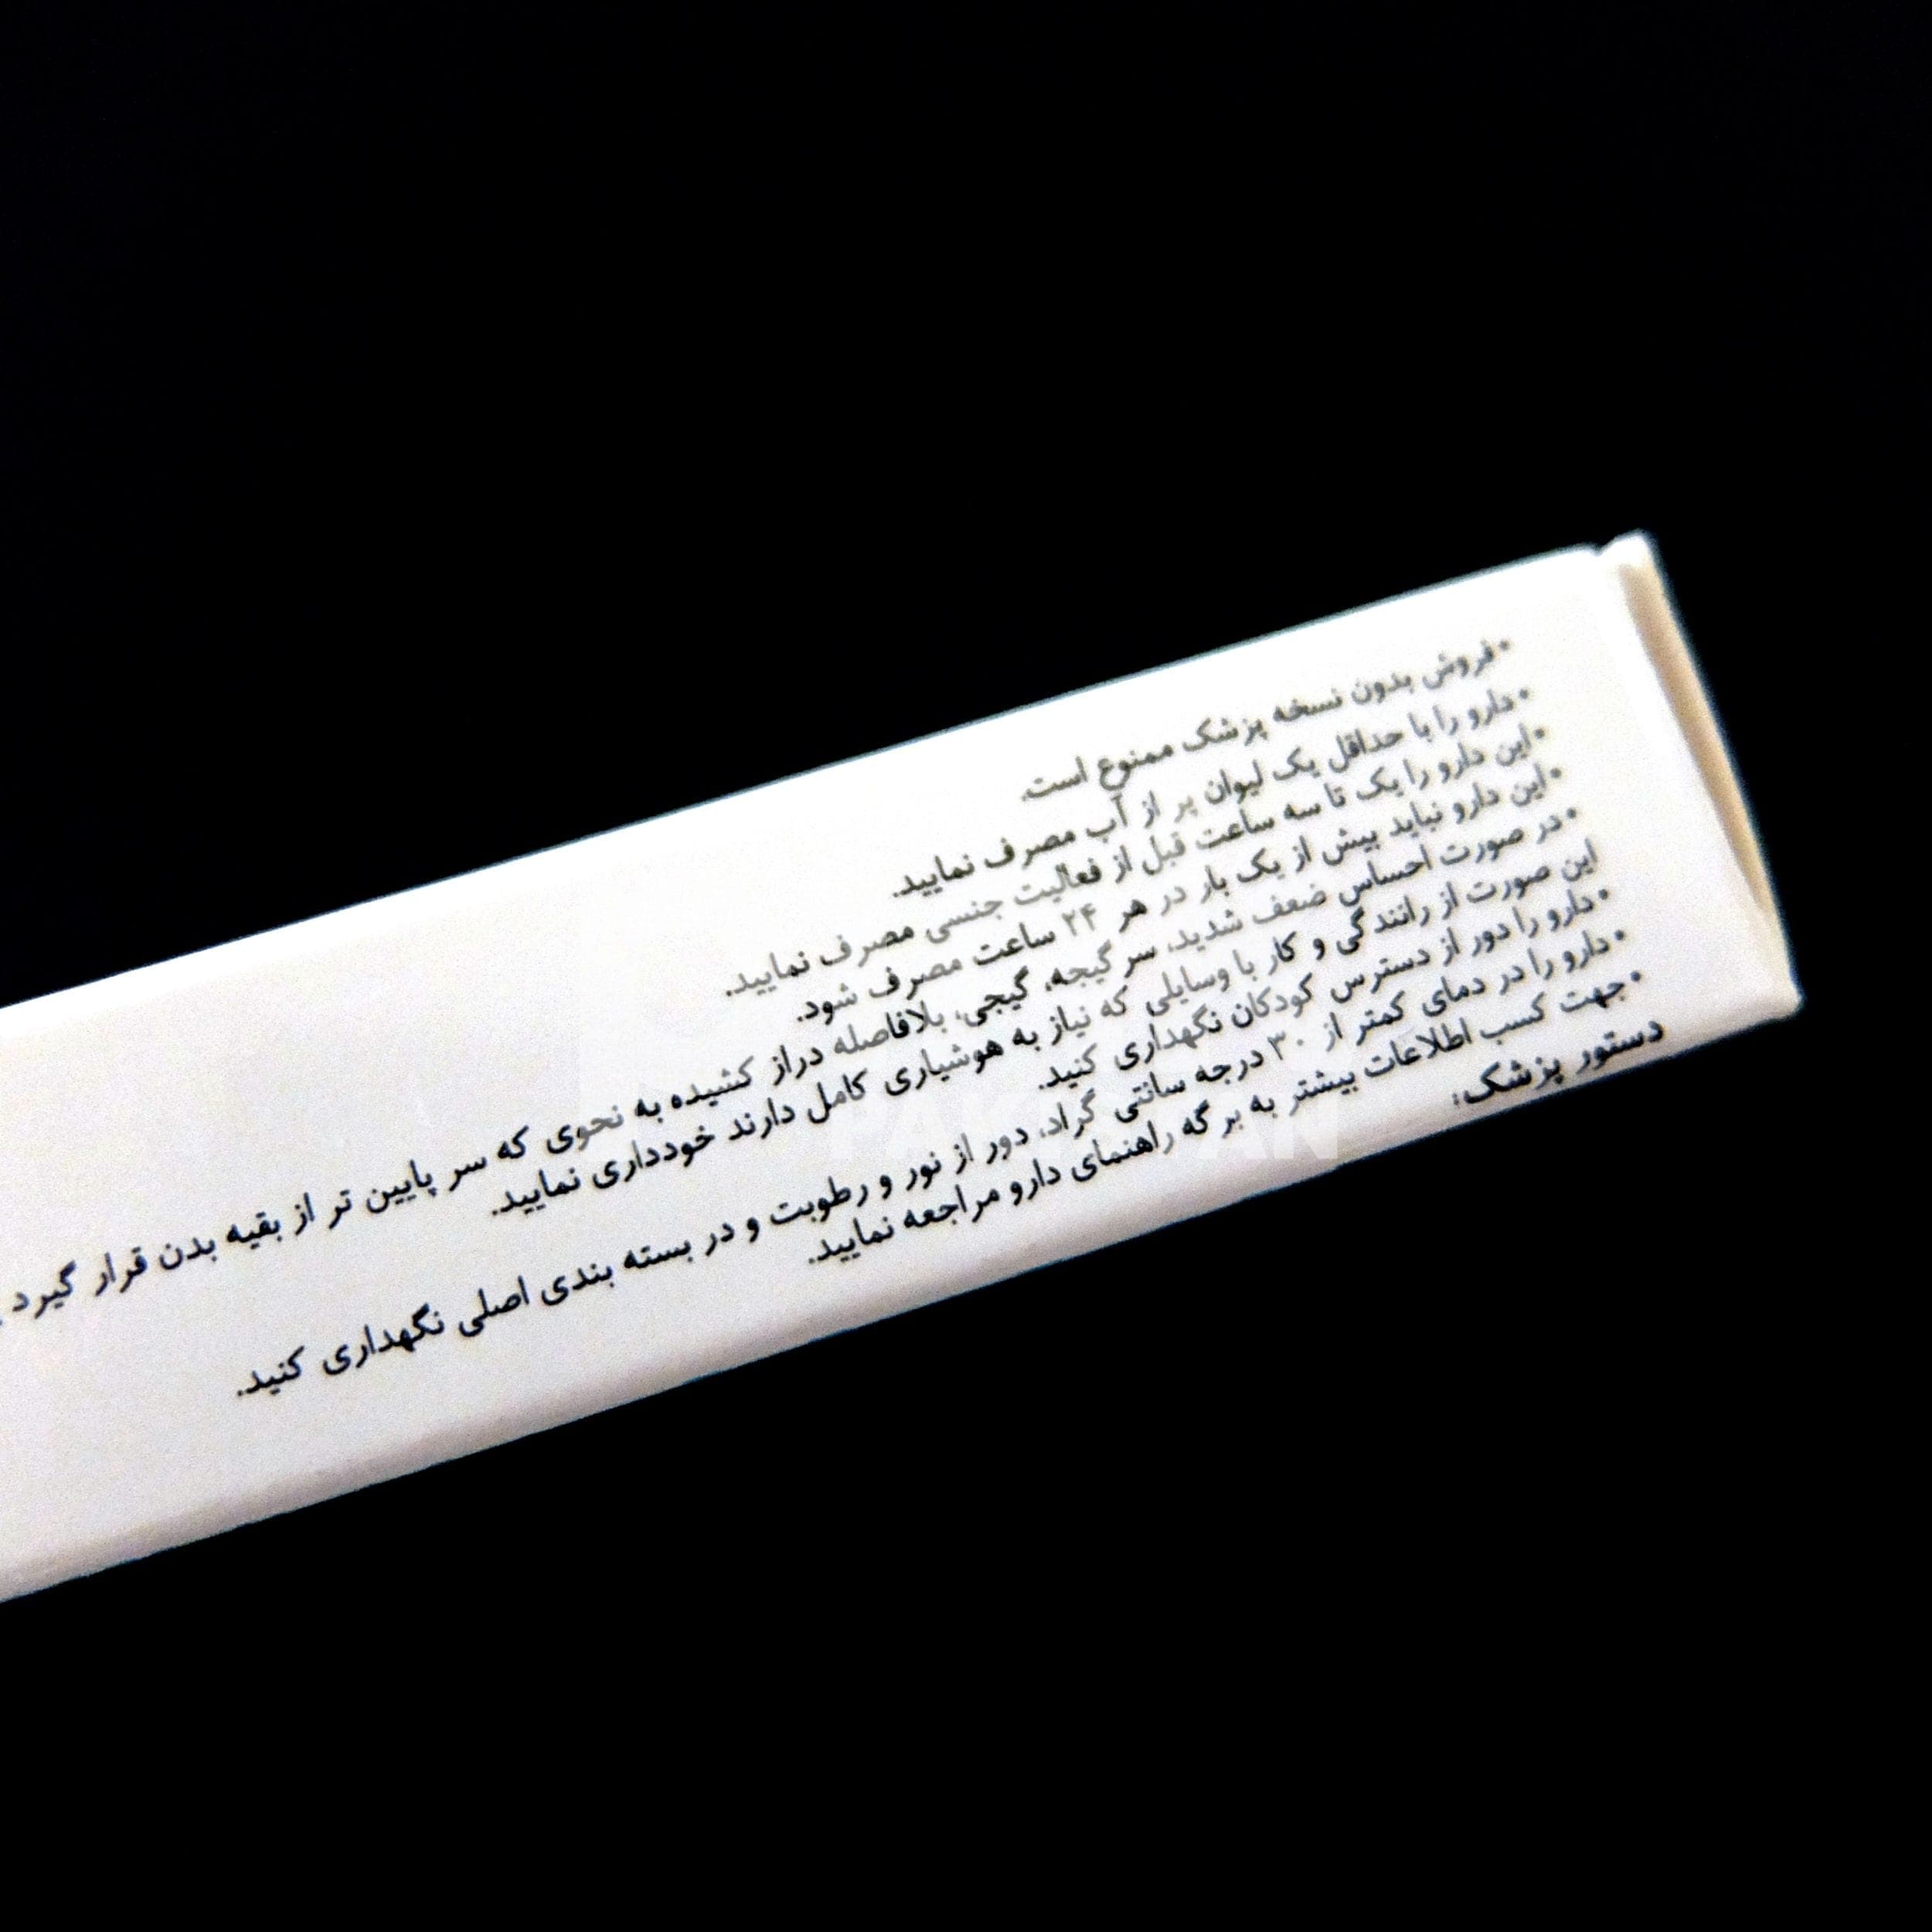 •فروش بدون نسخه پزشک ممنوع است.
•دارو را با حداقل یک لیوان پر از آب مصرف نمایید.
•این دارو را یک تا سه ساعت قبل از فعالیت جنسی مصرف نمایید.
•این دارو نباید بیش از یک بار در هر ۲۴ ساعت مصرف شود.
•در صورت احساس ضعف شدید، سرگیجه، گیجی، بلافاصله دراز کشیده به نحوی که سر پایین تر از بقیه بدن قرار گیرد
این صورت از رانندگی و کار با وسایلی که نیاز به هوشیاری کامل دارند خودداری نمایید.
•دارو را دور از دسترس کودکان نگهداری کنید.
•دارو را در دمای کمتر از ۳۰ درجه سانتی گراد، دور از نور و رطوبت و در بسته بندی اصلی نگهداری کنید.
•جهت کسب اطلاعات بیشتر به برگه راهنمای دارو مراجعه نمایید.
دستور پزشک: